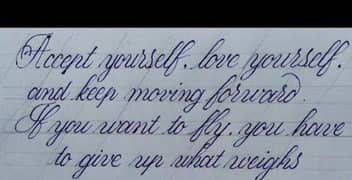 Accept yourself, love yourself,
and keep moving forward.
If you want to fly, you have
to give up what weighs